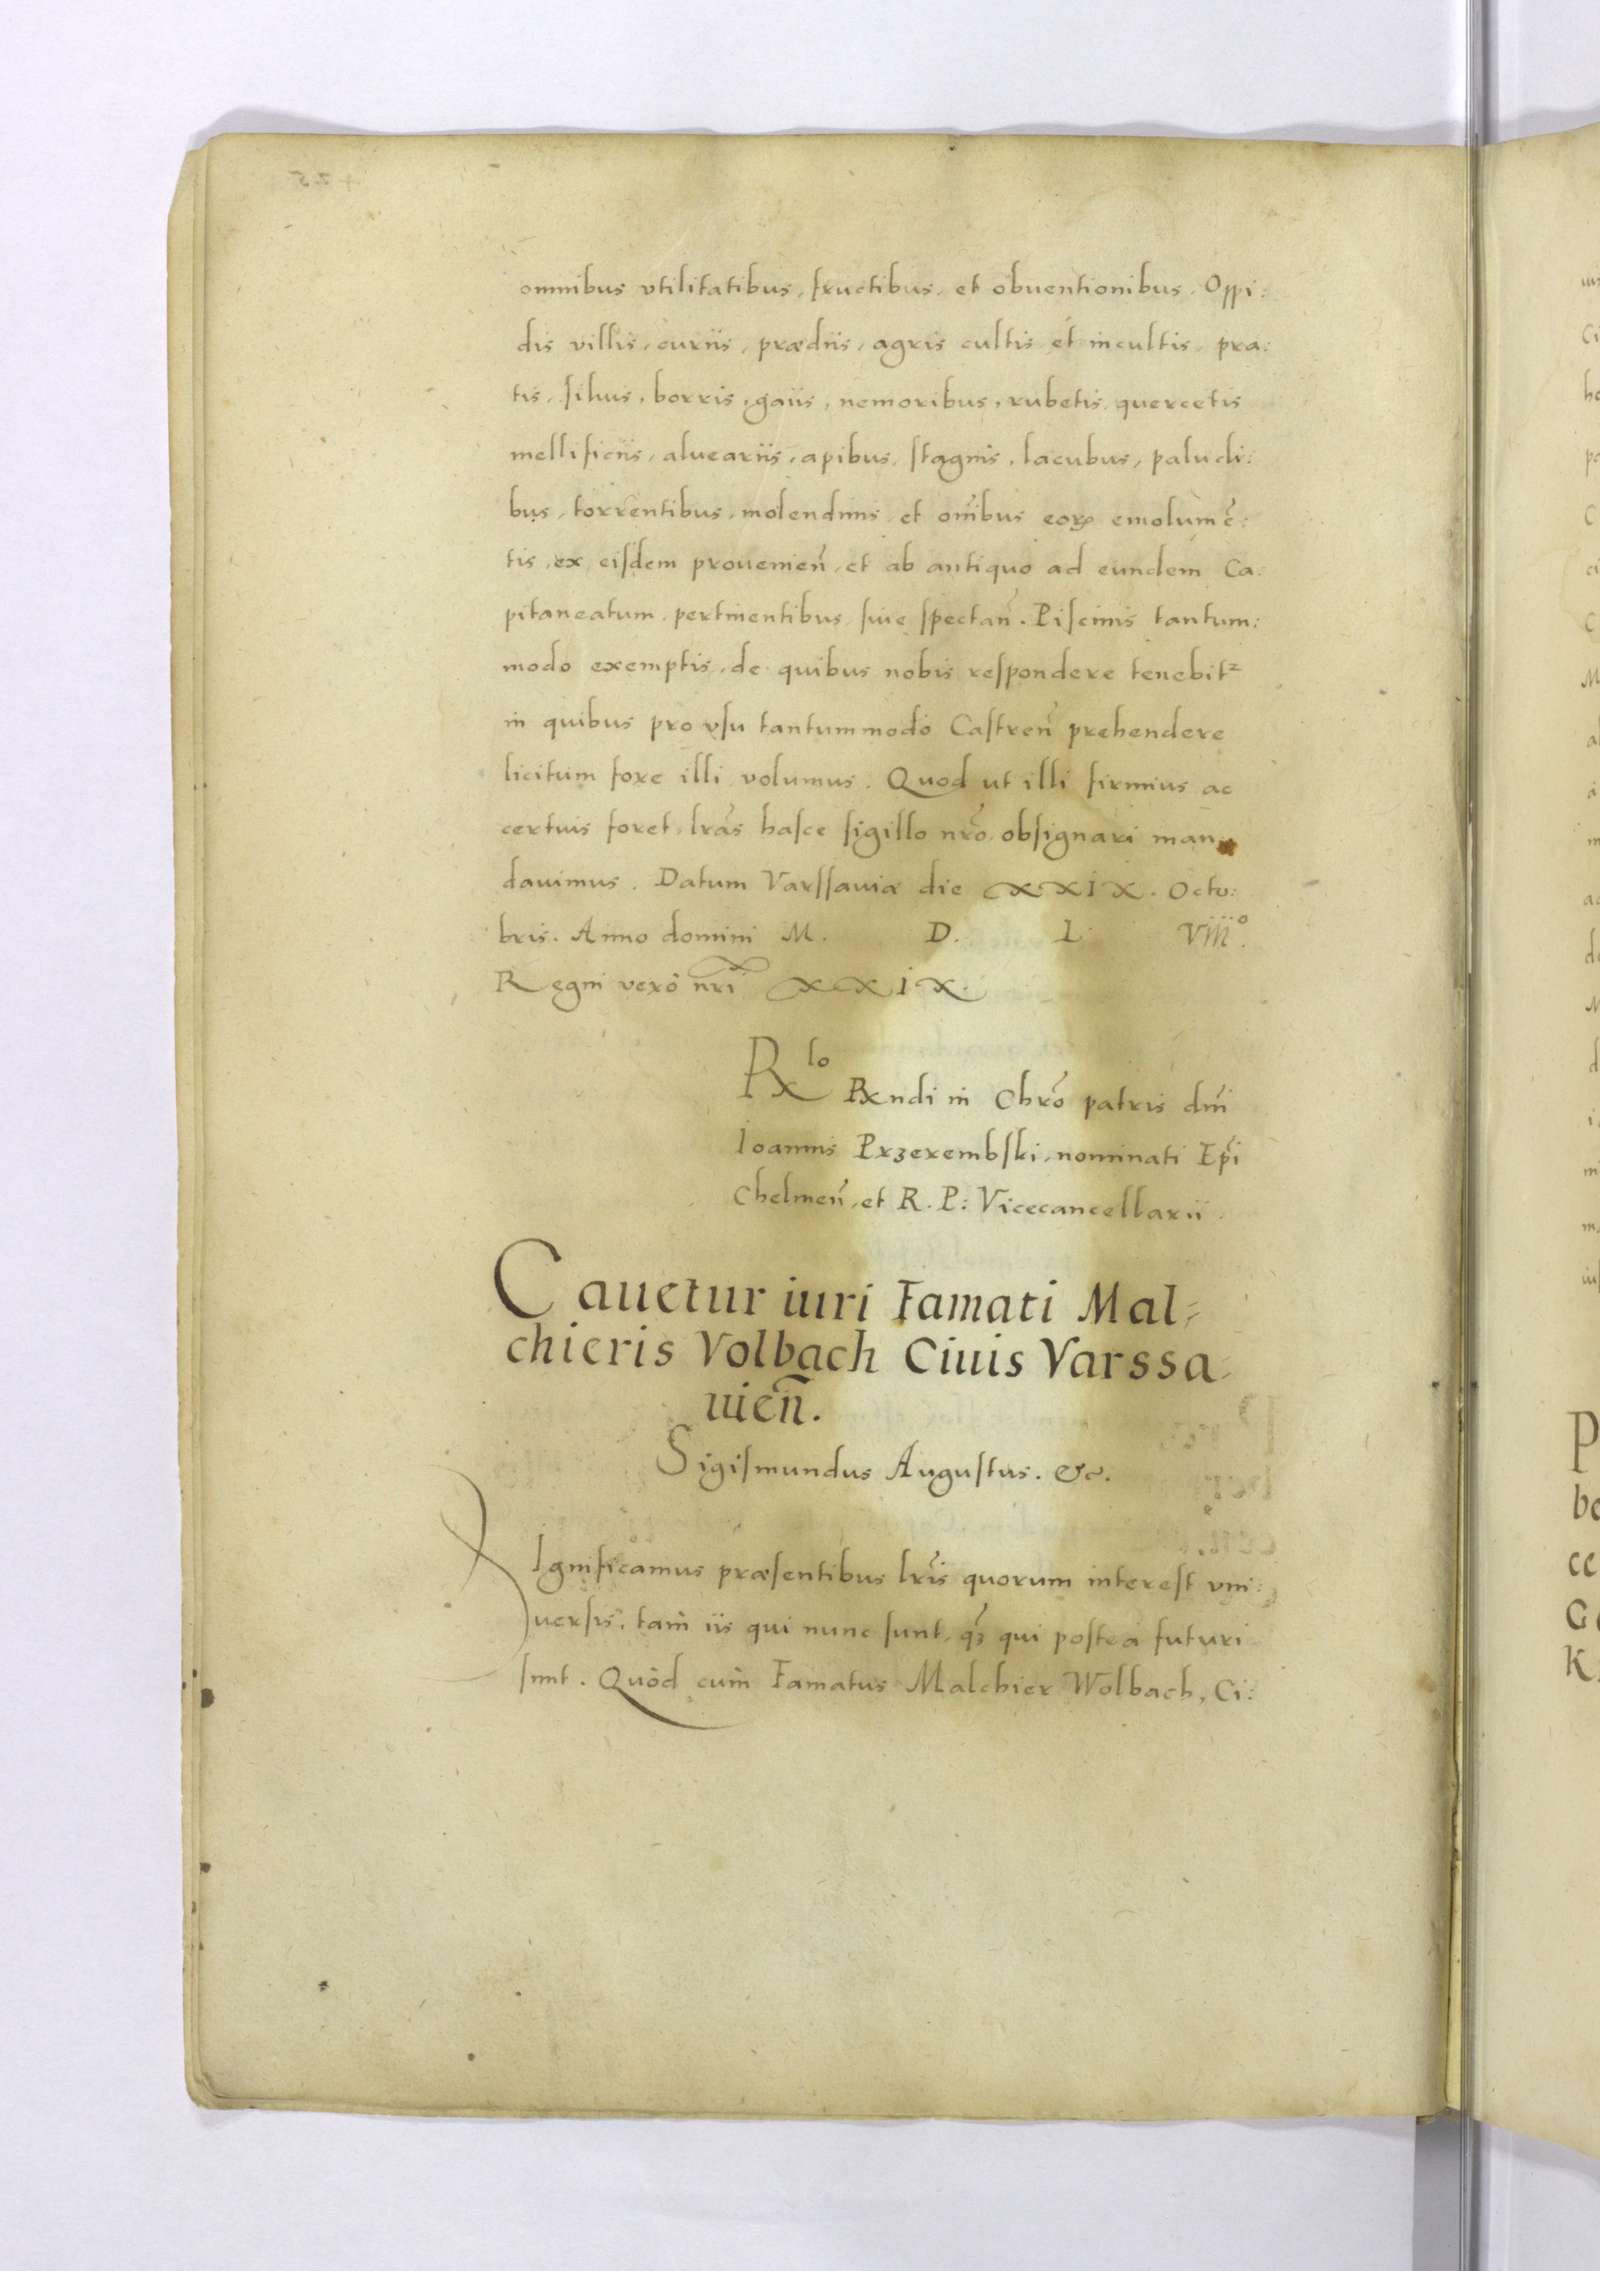 omnibus vtilitatibus, fructibus, et obuentionibus, Oppi:
dis villis, curiis, prædiis, agris cultis et incultis, pra:
tis, siluis, borris, gaiis, nemoribus, rubetis, quercetis
mellificiis, alueariis, apibus, stagnis, lacubus, paludi:
bus, torrentibus, molendinis, et om̃ibus eoꝝ emolumẽ:
tis, ex eisdem prouenien̄, et ab antiquo ad eundem Ca:
pitaneatum, pertinentibus, siue spectan̄. Piscinis tantum:
modo exemptis, de quibus nobis respondere tenebitᷣ
in quibus pro vsu tantummodo Castren̄ prehendere
licitum fore illi volumus. Quod ut illi firmius ac
certuis foret, lrãs hasce sigillo nrõ obsignari man
dauimus. Datum Varssauiæ die XXIX. Octo:
bris. Anno domini M. D. L. viii°.
Regni verò nrĩ XXIX.
Rlo Rxndi in Chrõ patris dñi
Ioannis Przerembski, nominati Ep̃i
Chelmen̄, et R. P: Vicecancellarii.
Cauetur iuri Famati Mal=
chieris Volbach Ciuis Varssa=
uien̄.
Sigismundus Augustus. &c.
SIgnificamus præsentibus lrĩs quorum interest vni:
uersis, tam iis qui nunc sunt, qꝫ qui postea futuri
sunt. Quòd cùm Famatus Malchier Wolbach, Ci: